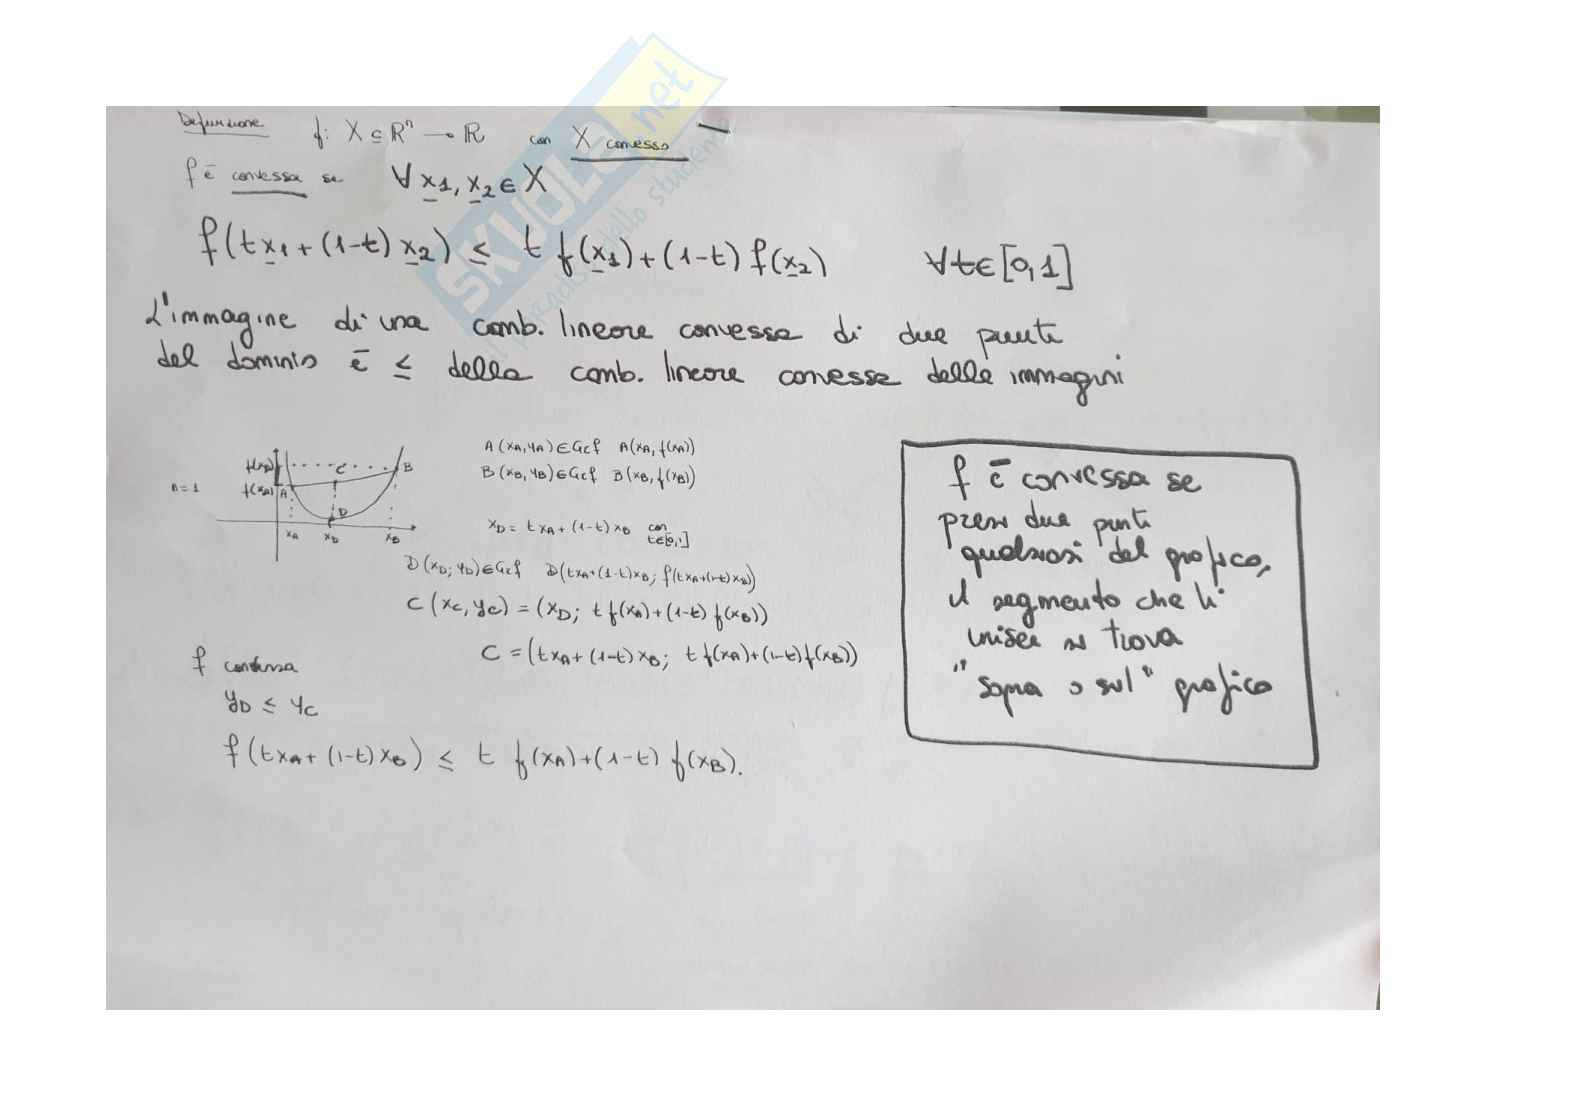 Definizione f: X ⊆ ℝⁿ → ℝ con X convesso
f ē convessa se ∀ x1, x2 ∈ X
f(tx1+(1-t) x2) ≤ t f(x1)+(1-t) f(x2) ∀t∈[0,1]
L'immagine di una comb. lineare convessa di due punti
del dominio ē ≤ della comb. lineare convessa delle immagini
A(xA,yA)∈Gcf A(xA,f(xA))
B(xB,yB)∈Gcf B(xB,f(xB))
n=1
f(xB)
f(xA)
A
C
B
D
xA xD xB
xD = t xA + (1-t) xB con t∈[0,1]
D(xD; yD)∈Gcf D(txA+(1-t)xB; f(txA+(1-t)xB))
C(xC,yC) = (xD; t f(xA)+(1-t) f(xB))
C = (txA+(1-t)xB; t f(xA)+(1-t)f(xB))
f convessa
yD ≤ yC
f(txA+(1-t)xB) ≤ t f(xA)+(1-t) f(xB).
f ē convessa se
presi due punti
qualsiasi del grafico,
il segmento che li
unisce si trova
"sopra o sul" grafico
SKUOLA.net
il paradiso dello studente